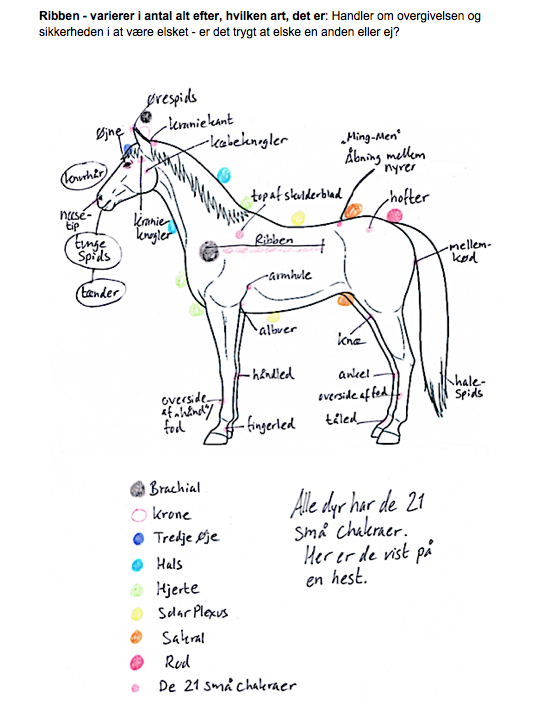 Ribben - varierer i antal alt efter, hvilken art, det er: Handler om overgivelsen og
sikkerheden i at være elsket - er det trygt at elske en anden eller ej?
Ørespids
Øjne
kraniekant
kæbeknogler
"Ming-Men"
Åbning mellem
nyrer
knurhår
top af skulderblad
hofter
næse-
tip
kranie-
knogler
tunge
Spids
Ribben
mellem-
kød
tænder
armhule
albuer
knæ
håndled
ankel
overside
af "hånd"/
fod
overside af fod
hale-
Spids
fingerled
tåled
Brachial
Krone
Tredje Øje
Hals
Hjerte
Solar Plexus
Sakral
Rod
De 21 små chakraer
Alle dyr har de 21
små chakraer.
Her er de vist på
en hest.